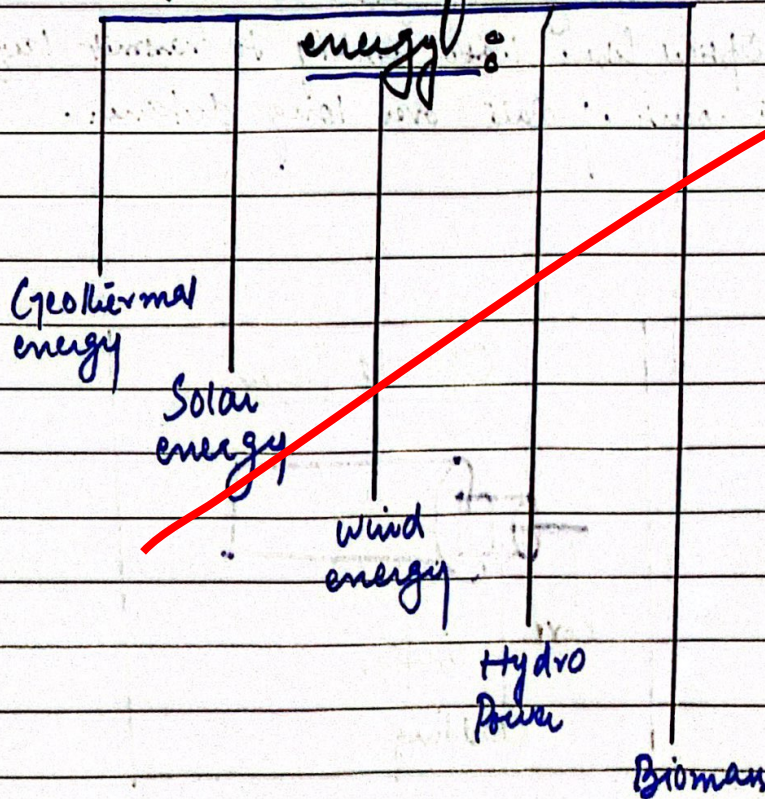 energy :
Geothermal
energy
Solar
energy
wind
energy
Hydro
Power
Biomass